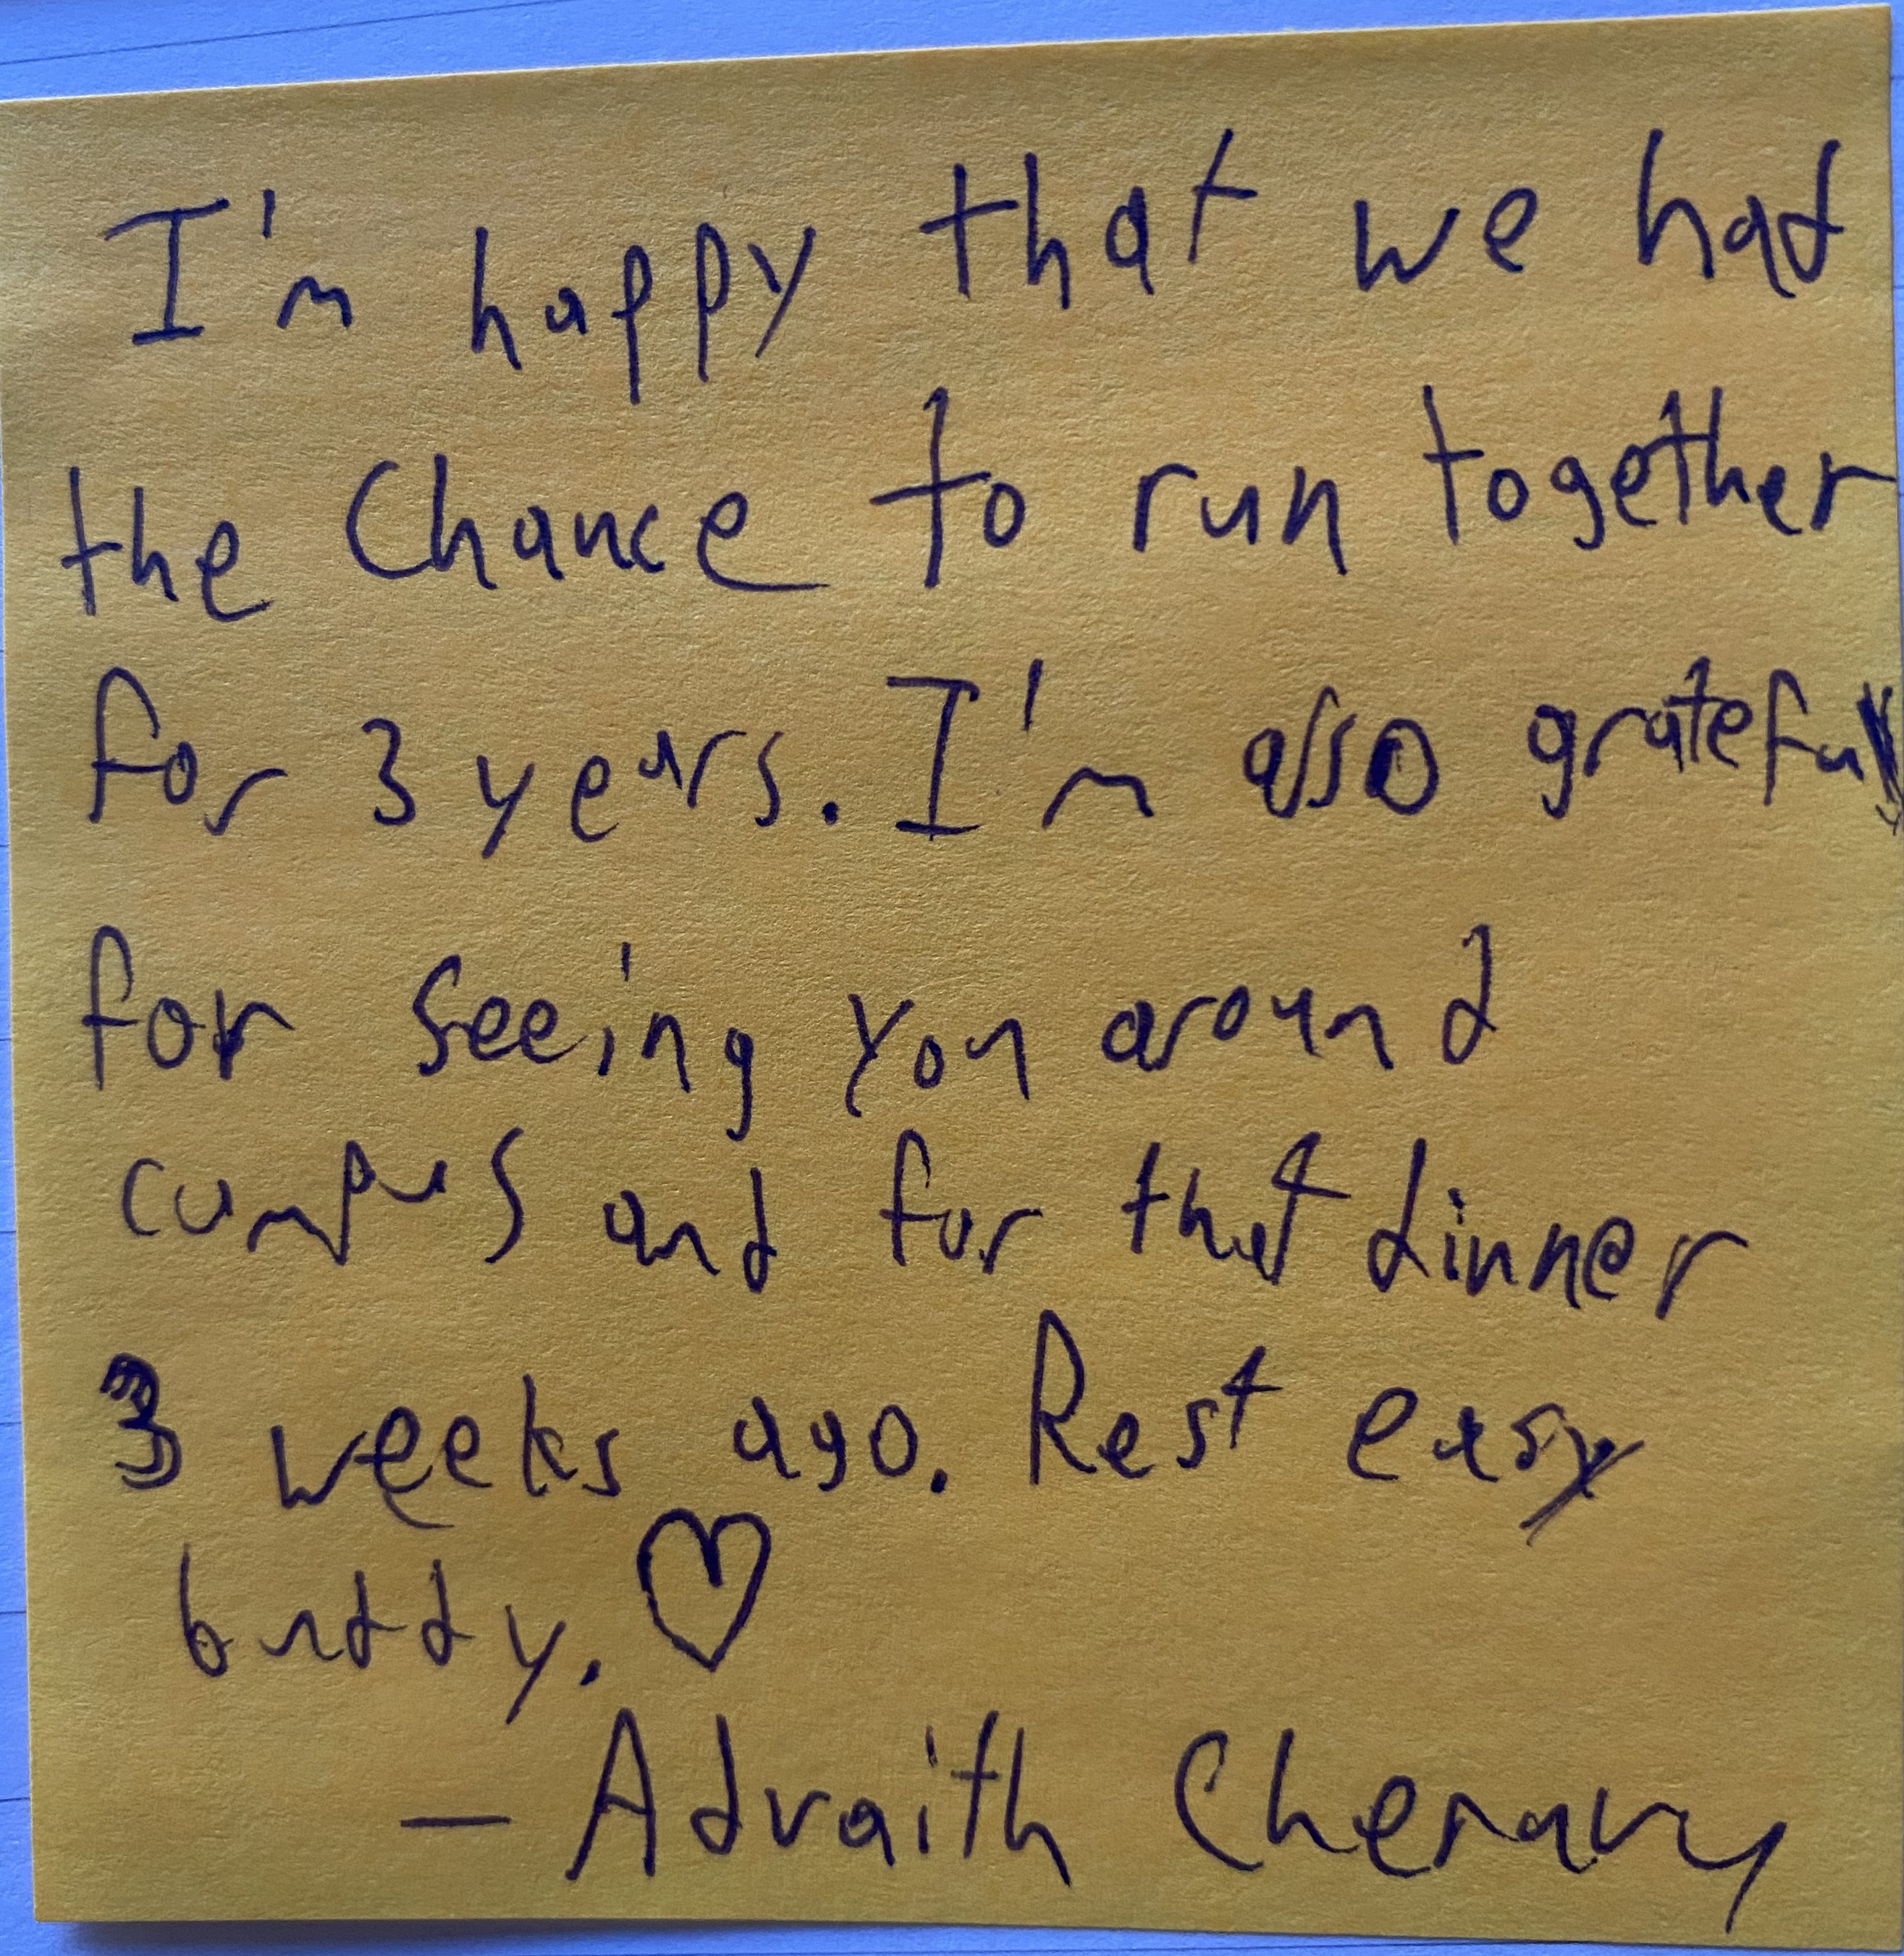 I'm happy that we had
the Chance to run together
for 3 years. I'm also grateful
for seeing you around
campus and for that dinner
3 weeks ago. Rest easy
buddy. ♡
— Advaith